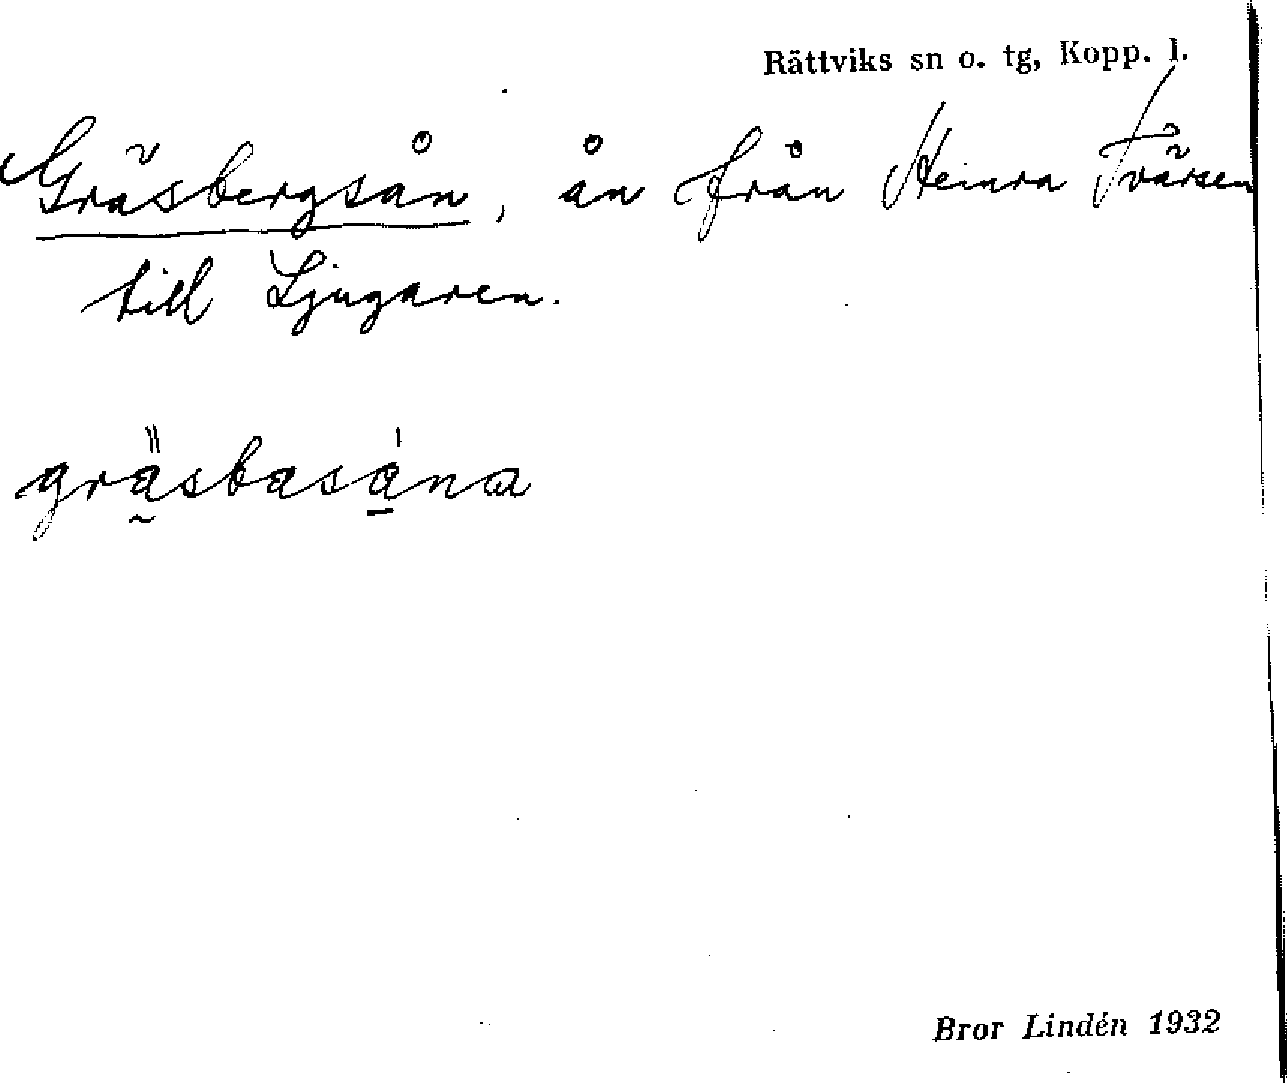 Rättviks sn o. tg, Kopp. l.
Gräsbergsån, ån från Heinra Tvärsen
till Ljugaren.
gräsbasåna
Bror Lindén 1932